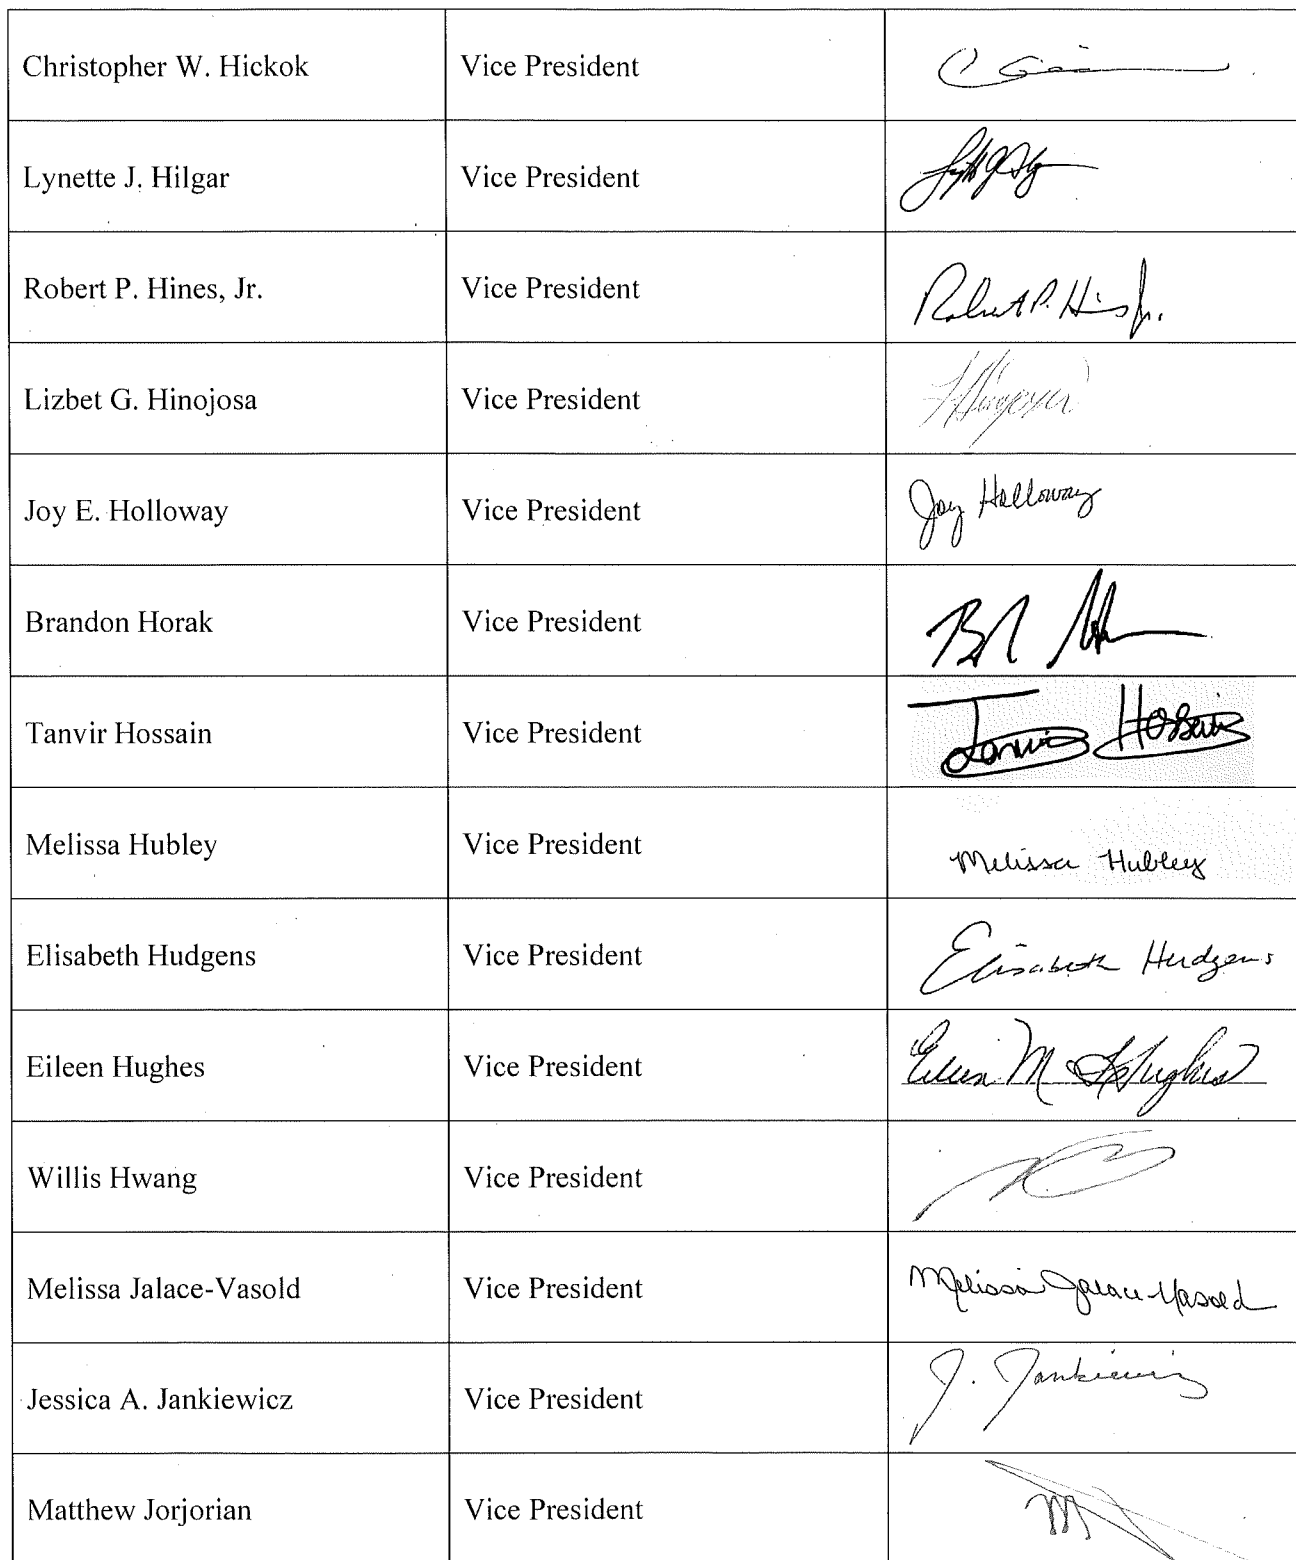 Christopher W. Hickok Vice President
Lynette J. Hilgar Vice President
Robert P. Hines, Jr. Vice President Robert P. Hines Jr.
Lizbet G. Hinojosa Vice President LHinojosa
Joy E. Holloway Vice President Joy Holloway
Brandon Horak Vice President
Tanvir Hossain Vice President Tanvir Hossain
Melissa Hubley Vice President Melissa Hubley
Elisabeth Hudgens Vice President Elisabeth Hudgens
Eileen Hughes Vice President Eileen M Hughes
Willis Hwang Vice President
Melissa Jalace-Vasold Vice President Melissa Jalace-Vasold
Jessica A. Jankiewicz Vice President J. Jankiewicz
Matthew Jorjorian Vice President M